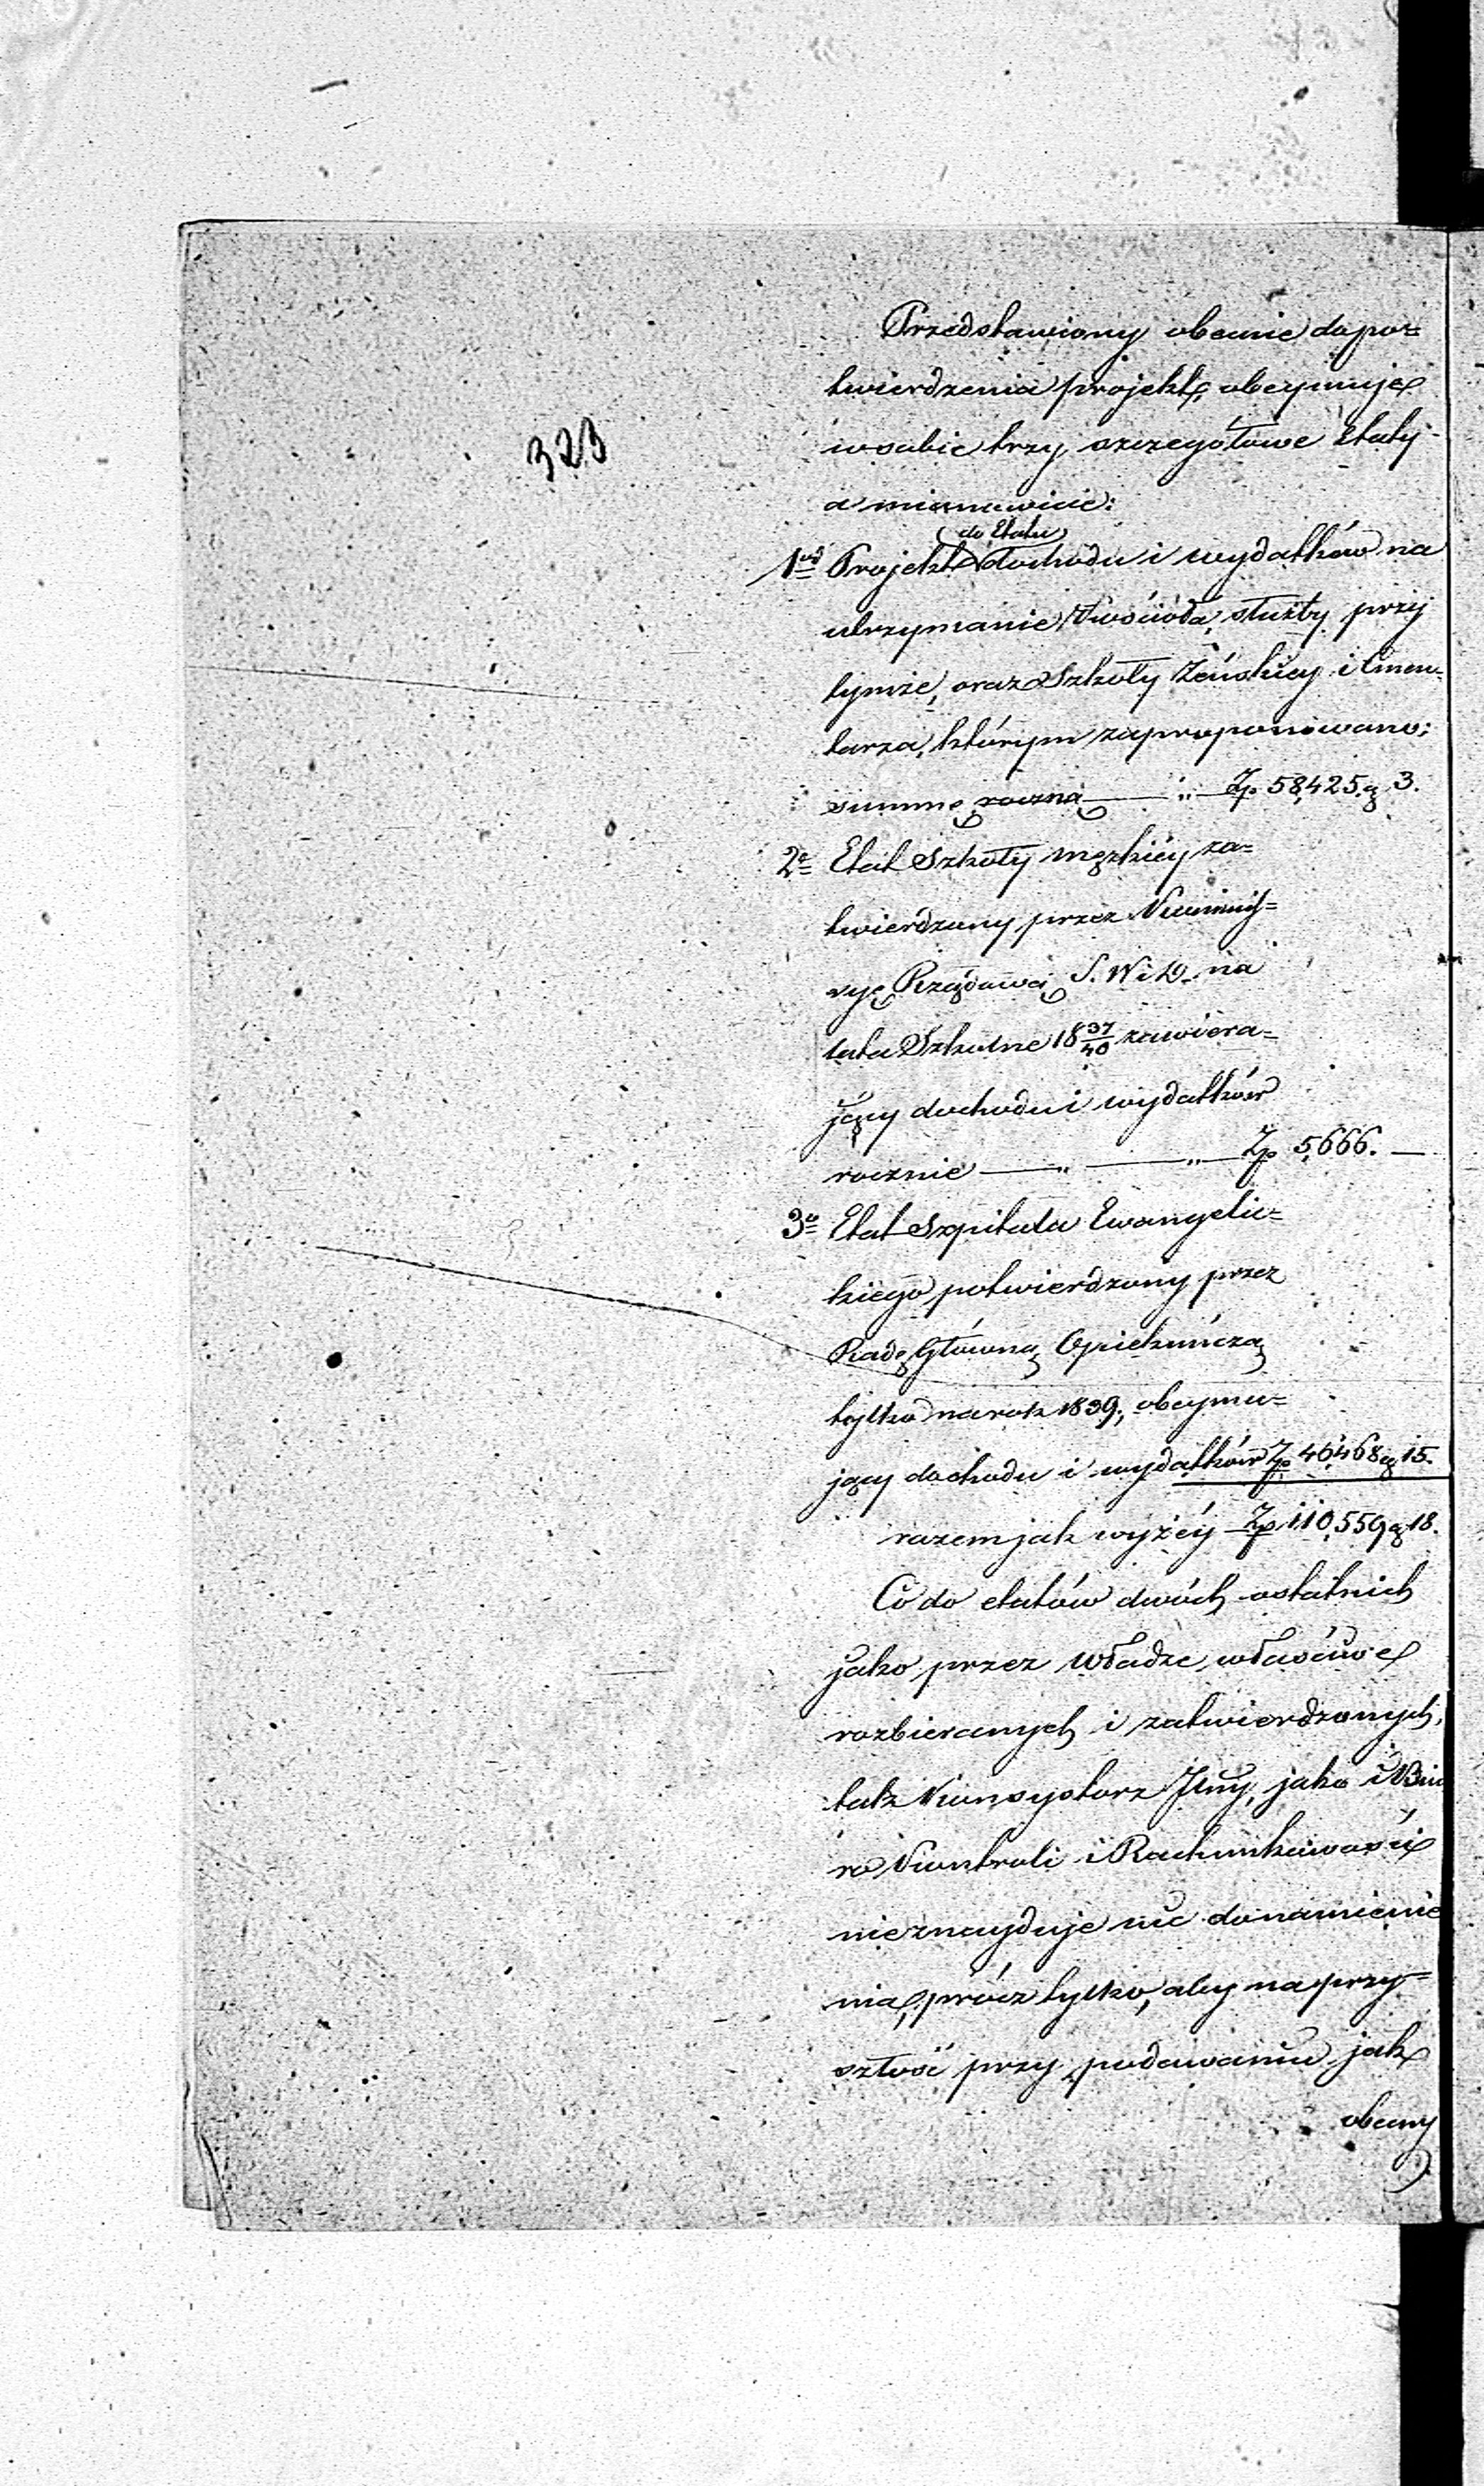 323
Przedstawiony obecnie do po=
twierdzenia projekt, obeymuje
w sobie trzy szczegółowe Etaty
a mianowicie:
do Etatu
1mo Projekt dochodu i wydatków na
utrzymanie Kościoła, służby przy
tymże, oraz Szkoły Żeńskiey i Cmen=
tarza, którym zaproponowano;
summę roczną — „ — Zp 58,425. g 3.
2o Etat Szkoły męzkiéy za=
twierdzony przez Kommis=
syę Rządową S. W i D. na
lata Szkolne 18 37/40 zawiera=
jący dochodu i wydatków
rocznie — „ — „ — Zp 5,666. —
3o Etat Szpitala Ewangelic=
kiego potwierdzony przez
Radę Główną Opiekuńczą
tylko na rok 1839, obeymu=
jący dochodu i wydatków Zp 46,468 g 15.
razem jak wyżéy Zp 110,559 g 18.
Co do etatów dwóch ostatnich
jako przez Władze właściwe
rozbieranych i zatwierdzonych,
tak Konsystorz Jlny, jako i Biu
ro Kontroli i Rachunkowości
nieznayduje nic do namienie
nia, prócz tylko, aby na przy=
szłość przy podawaniu jak
obecny